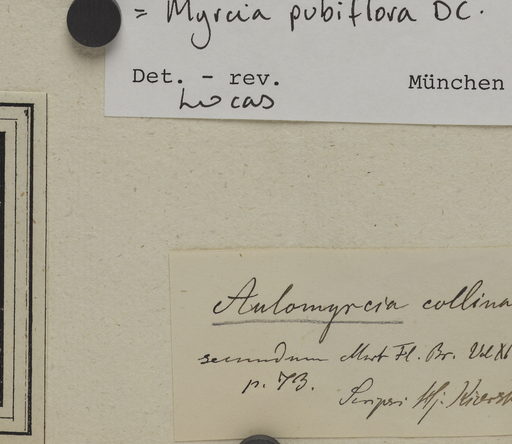 = Myrcia pubiflora DC.
Det. - rev. München
Lucas
Aulomyrcia collina
secundum Mart Fl. Br. Vol XI
p. 73.
Scripsi Hj. Kiærsk